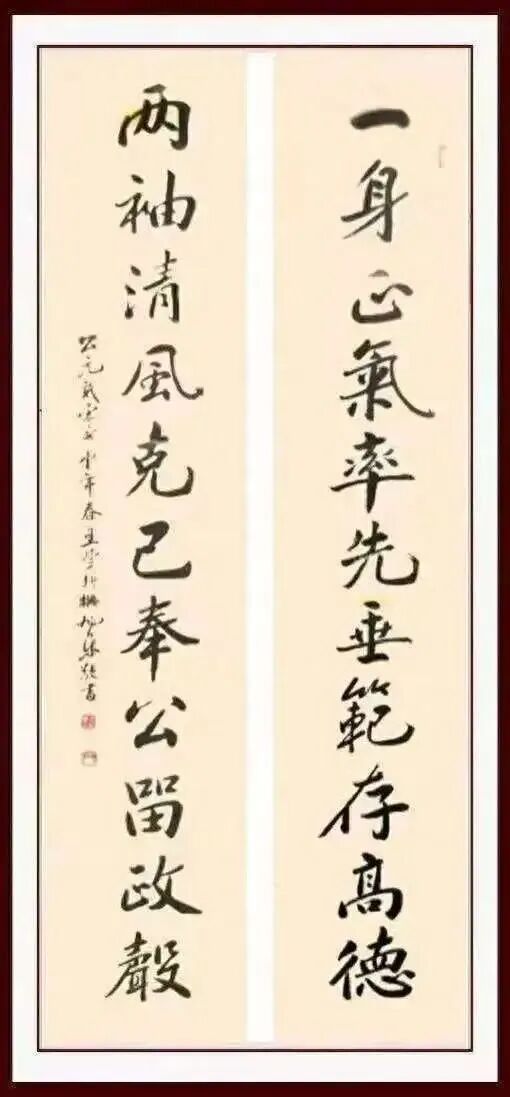 一身正氣率先垂範存高德
两袖清風克己奉公留政聲
公元 年春 書